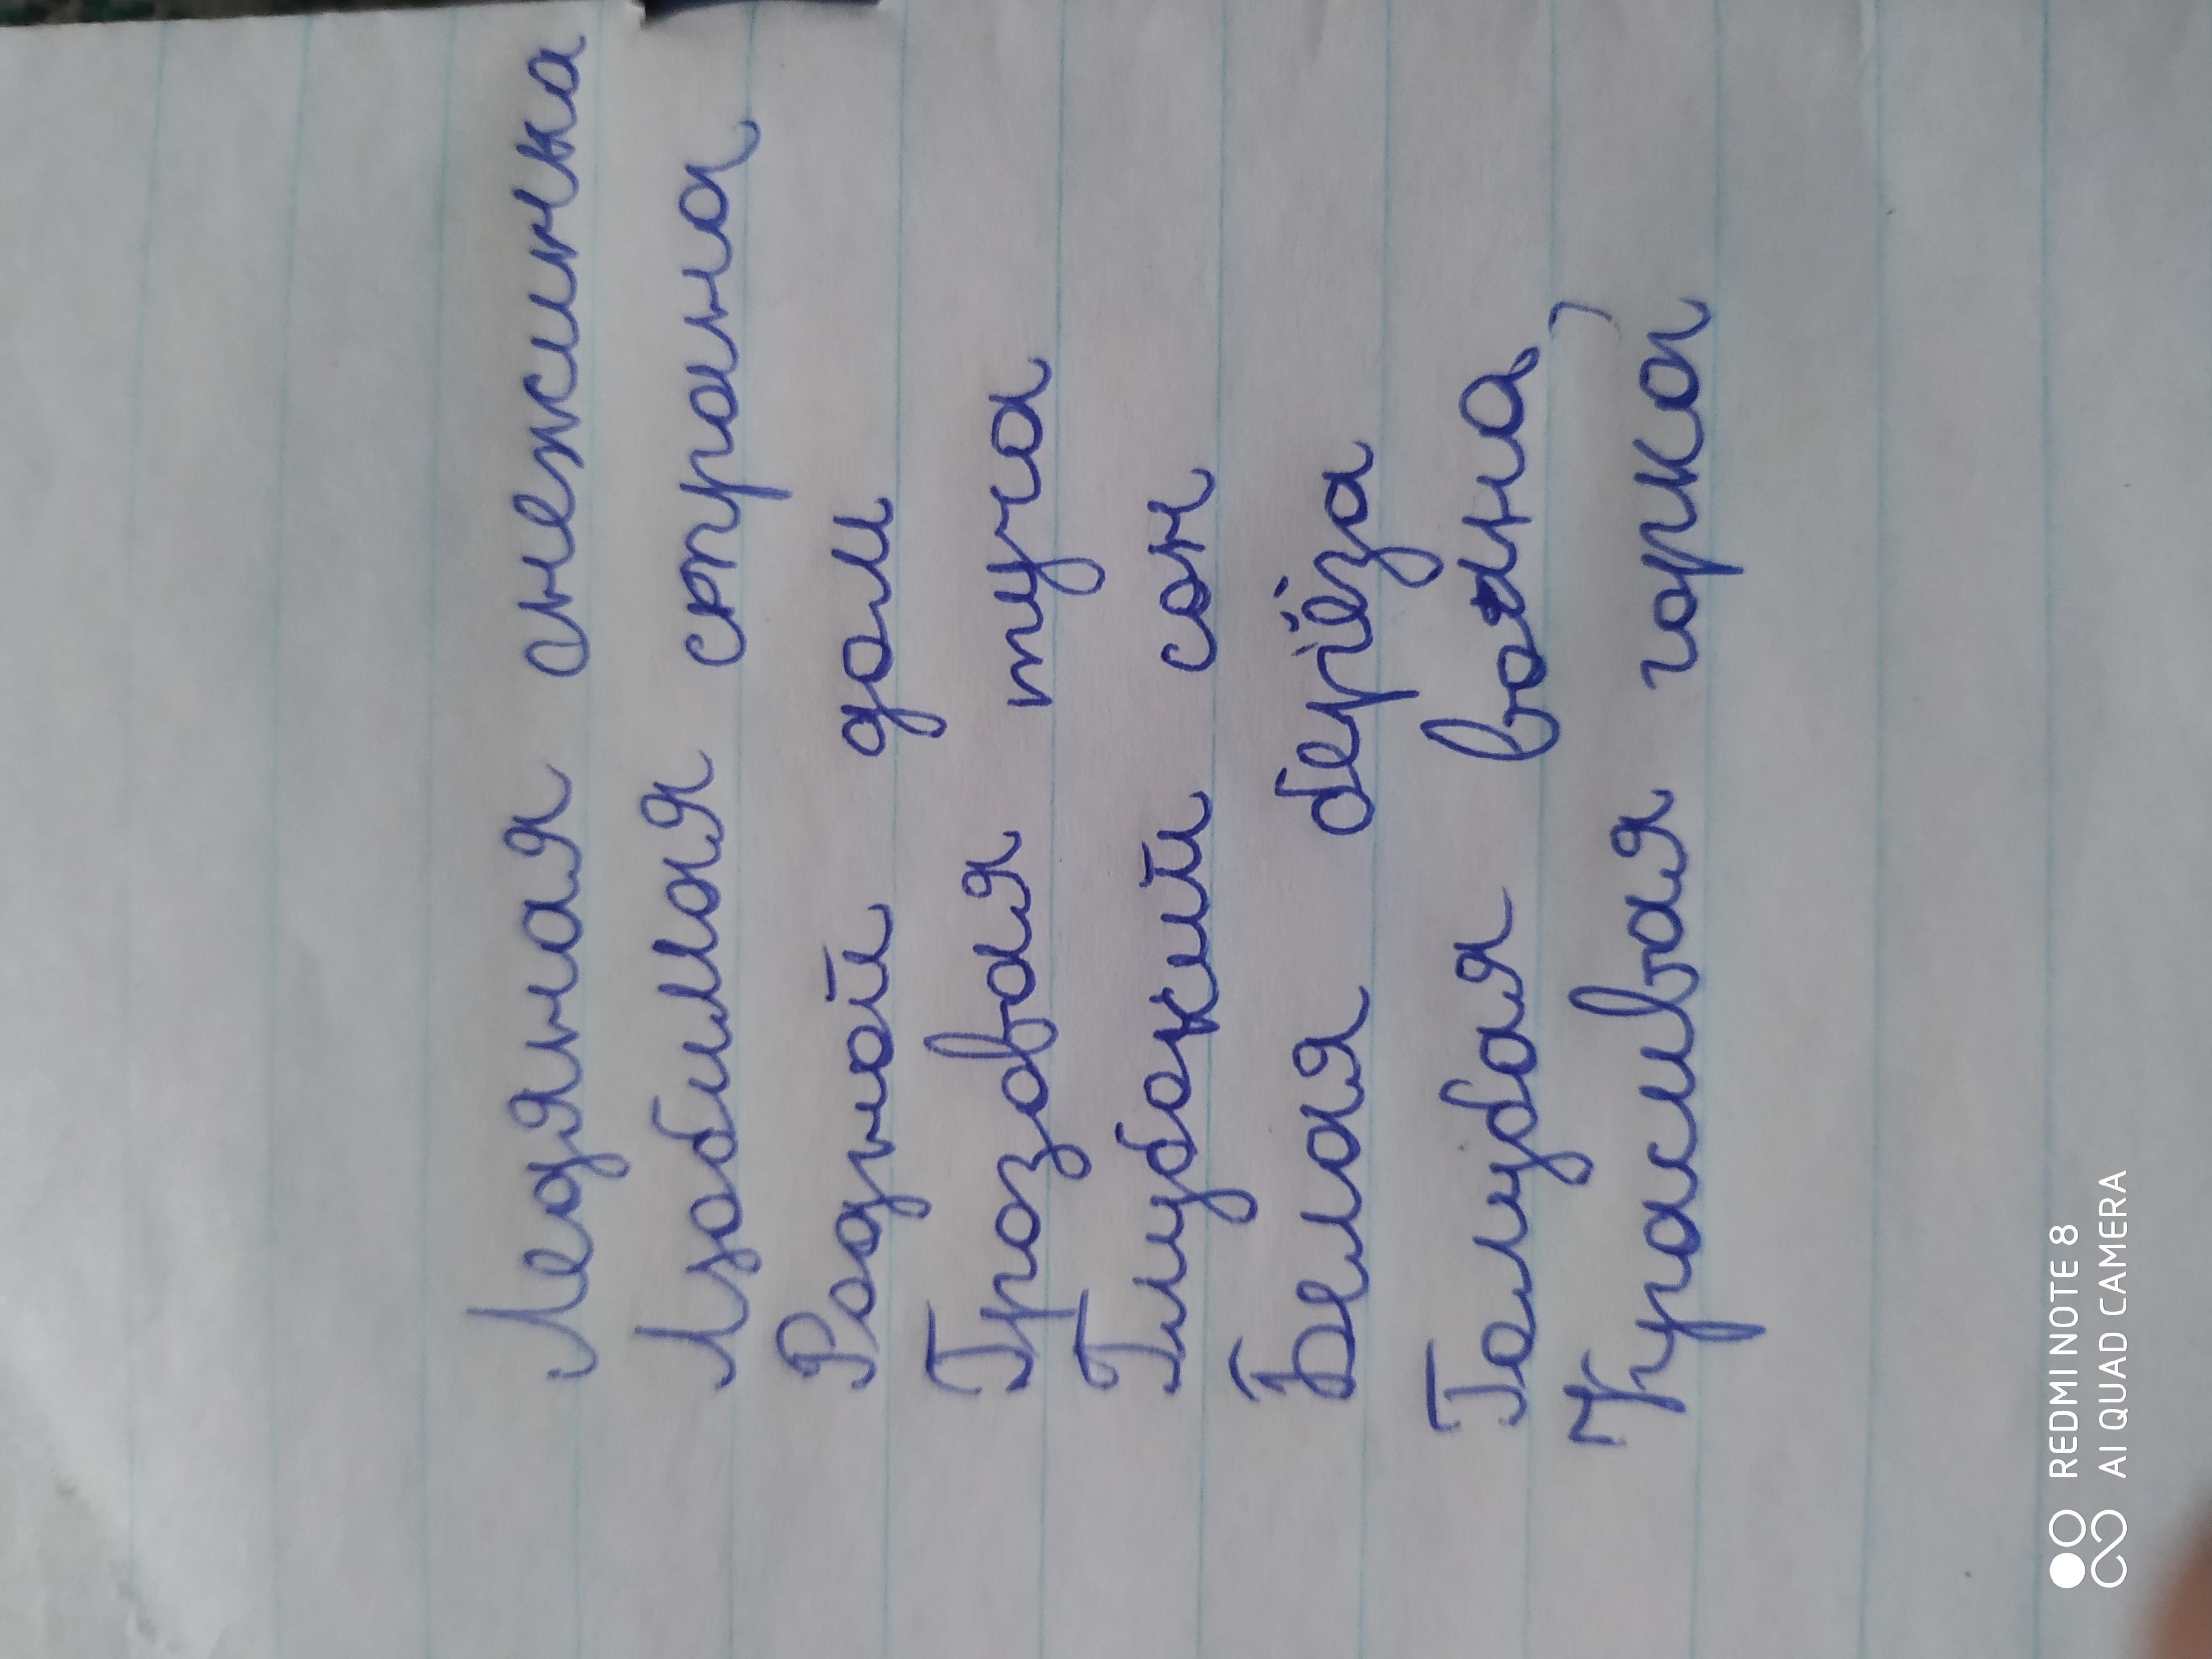 Ледяная снежинка
Любимая страна
Родной дом
Грозовая туча
Глубокий сон
Белая берёза
Голубая волна
Красивая горка
REDMI NOTE 8
AI QUAD CAMERA